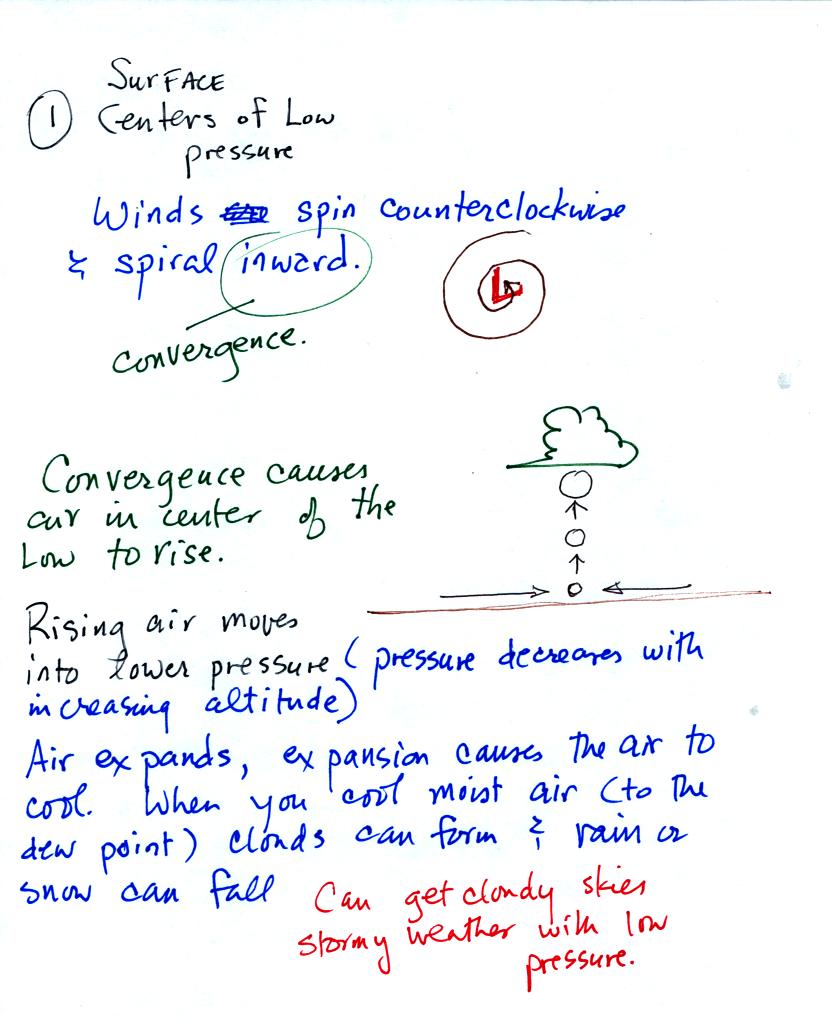 SURFACE
① Centers of Low
pressure
Winds spin counterclockwise
& spiral inward.
L
Convergence.
Convergence causes
air in center of the
Low to rise.
Rising air moves
into lower pressure (pressure decreases with
increasing altitude)
Air expands, expansion causes the air to
cool. When you cool moist air (to the
dew point) clouds can form & rain or
snow can fall
Can get cloudy skies
stormy weather with low
pressure.